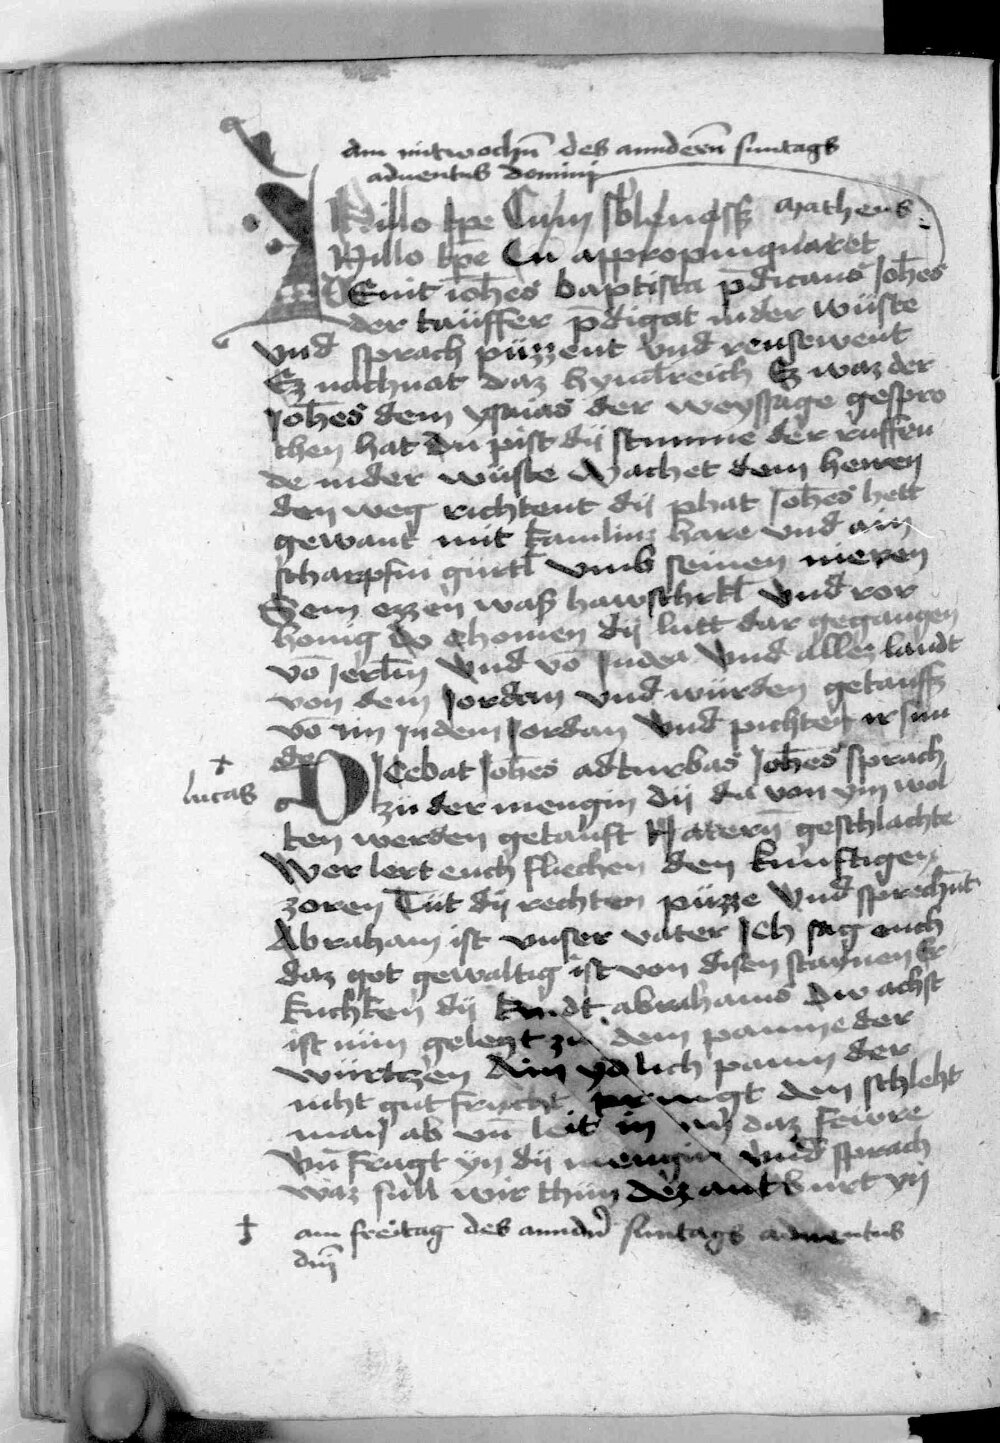 am mitwochn̄ des anndern̄ suntags
aduentus domini
In illo tp̄e Cum Matheus
In illo tp̄e Cū appropinquaret
VEnit ioh̄es baptista p̄dicans Joh̄es
der taüffer p̄digat in der wüste
vnd sprach püzzent vnd rensewent
Ez nachnat daz hymelreich Ez waz der
Joh̄es dem ysaias der weyssage gespro
chen hat Du pist dij stimme der ruffen
de in der wüste Machet dem herren
den weg richtent dij phat Joh̄es hett
gewant mit kamlinz hare vnd ain
scharpfin gurtl vmb seinen nieren
Sein ezzen waß hawschrekl vnd ror
honig Do chomen dij lutt dar gegangen
vō Jerl̄m vnd vō Judea vnd allez landt
von dem Jordan vnd würden getaufft
vō im in dem Jordan vnd pichten ir sun
de
DIcebat Joh̄es ad turbas Joh̄es sprach
lucas
zü der mengin dij da von ym wol
ten werden getauft Natern̄ geschlachte
Wer lert euch fliechen den künftigen
zoren Tüt dij rechten püzze vnd sprechn̄t
Abraham ist vnser vater Ich sag euch
daz got gewaltig ist von disen staynen Er
kuchken dij kindt abrahams Dw achst
ist nün gelegt zü dem paume der
würtzen Ain yglich paum der
niht gut frucht pringt den schleht
man ab vn̄ leit in daz fewre
Vn̄ fragt yn dij mengin vnd sprach
waz süll wir thün Dez antburt yn
am freitag des anndn̄ suntags aduentus
dnī